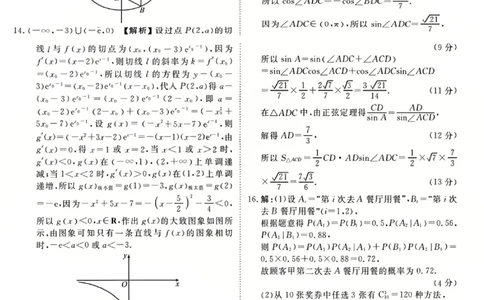 B
14.(-∞,-3)∪(-e,0) 【解析】设过点 P(2,a)的切
线 l 与 f(x)的切点为(x₀,(x₀-3)e^{x₀-1}),因为
f′(x)=(x-2)e^{x-1},所以切线 l 的斜率为 k=f′(x₀)
=(x₀-2)e^{x₀-1},所以切线 l 的方程为 y-(x₀-
3)e^{x₀-1}=(x₀-2)e^{x₀-1}(x-x₀),代入 P(2,a)得 a-
(x₀-3)e^{x₀-1}=(x₀-2)e^{x₀-1}(2-x₀),即 a=
(x₀-2)e^{x₀-1}(2-x₀)+(x₀-3)e^{x₀-1}=(-x₀²+
5x₀-7)e^{x₀-1},设 g(x)=(-x²+5x-7)e^{x-1},则
g′(x)=(-x²+3x-2)e^{x-1}=-(x-1)(x-2)e^{x-1},由
g′(x)=0,得 x=1 或 x=2,当 x<1 或 x>2 时,
g′(x)<0,g(x)在(-∞,1),(2,+∞)上单调递
减;当 1<x<2 时,g′(x)>0,g(x)在(1,2)上单调
递增,所以 g(x)极小值=g(1)=-3,g(x)极大值=g(2)
=-e,因为-x²+5x-7=-(x-5/2)²-3/4<0,
所以 g(x)<0,x∈R,作出 g(x)的大致图象如图所
示,由图象可知只有一条直线与 f(x)的图象相切
时,-e<a<0 或 a<-3.
y
O
x
因为∠ADC∈(0,π),所以 sin∠ADC=√21/7,
(9 分)
所以 sin A=sin(∠ADC+∠ACD)
=sin∠ADCcos∠ACD+cos∠ADCsin∠ACD
=√21/7×1/2+2√7/7×√3/2=3√21/14. (11 分)
在△ADC 中,由正弦定理得 CD/sin A=AD/sin∠ACD,
解得 AD=7/3, (12 分)
所以 S△ACD=1/2CD·ADsin∠ADC=1/2×√7×7/3
×√21/7=7√3/6. (13 分)
16.解:(1)设 Aᵢ=“第 i 次去 A 餐厅用餐”,Bᵢ=“第 i 次
去 B 餐厅用餐”(i=1,2).
根据题意得 P(A₁)=P(B₁)=0.5,P(A₂|A₁)=0.56,
P(A₂|B₁)=0.88,
则 P(A₂)=P(A₁)P(A₂|A₁)+P(B₁)P(A₂|B₁)=
0.5×0.56+0.5×0.88=0.72.
故顾客甲第二次去 A 餐厅用餐的概率为 0.72.
(4 分)
(2)从 10 张奖券中任选 3 张有 C₁₀³=120 种方法,